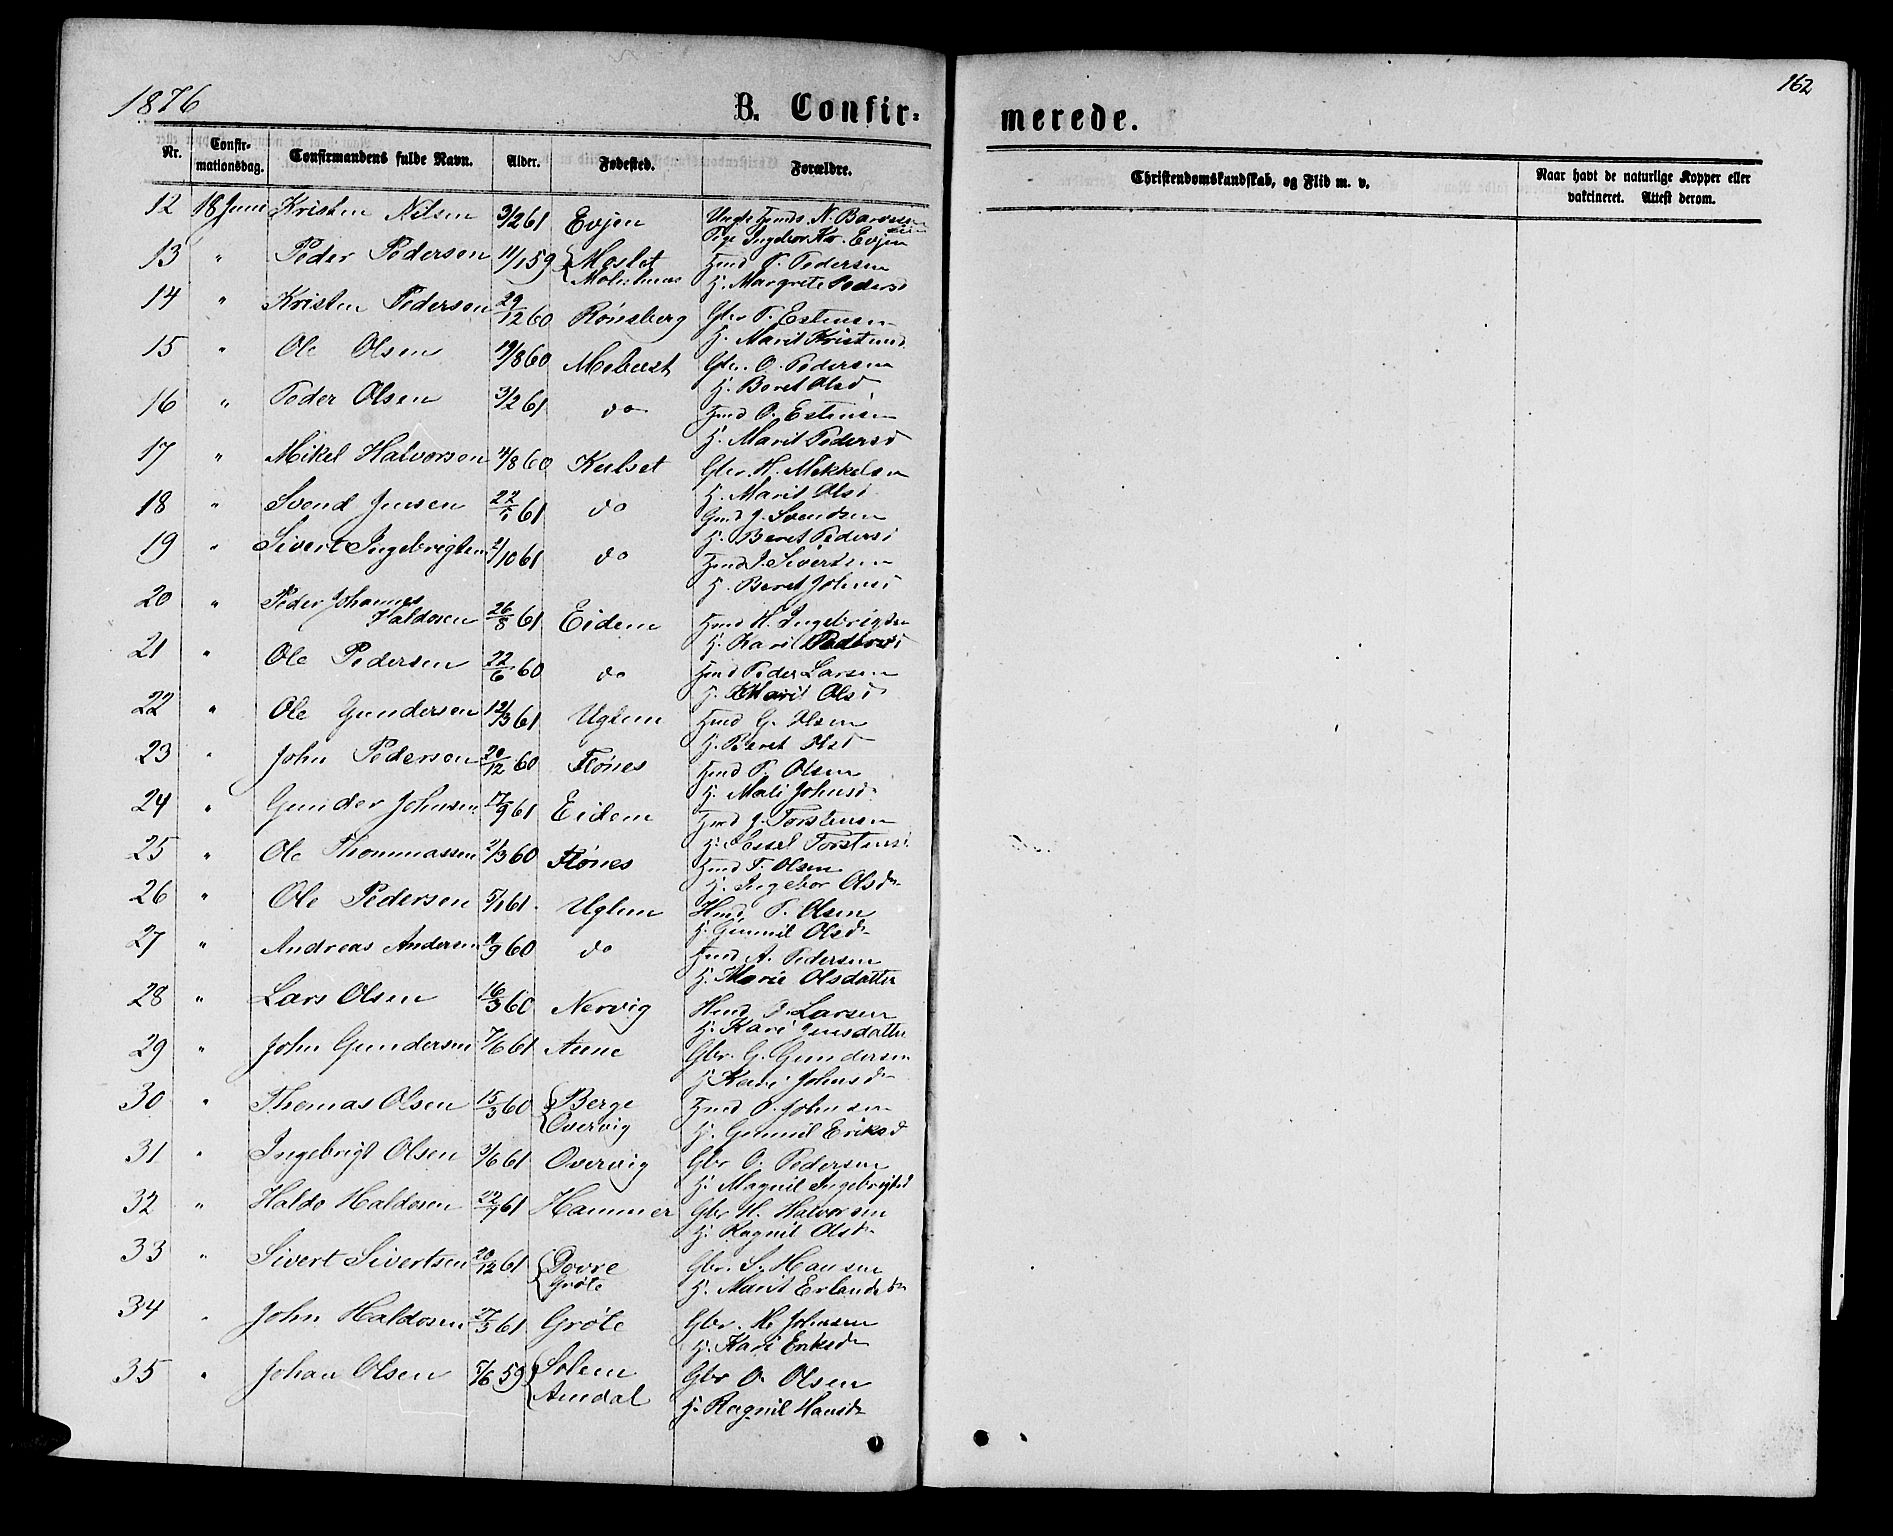 1876
B. Confir-
merede.
162
Nr.
Confir-
mationsdag.
Confirmandens fulde Navn.
Alder.
Fødested.
Forældre.
Christendomskundskab, og Flid m. v.
Naar havt de naturlige Kopper eller
vakcineret. Attest derom.
12 18 Juni Kristen Nilsen 3/2 61 Evjen Ungk Hmd N.
Pige Ingebor Kr. Evjen
13 " Peder Pedersen 11/1 59 Moslet Hmd P. Pedersen
H. Margrete Pedersd
14 " Kristen Pedersen 29/12 60 Rönsberg Gbr P. Estensen
H. Marit Kristensd
15 " Ole Olsen 19/8 60 Mebust Gbr. O. Pedersen
H. Beret Olsd
16 " Peder Olsen 3/2 61 do Hmd O. Estensen
H. Marit Pedersd
17 " Mikel Halvorsen /8 60 Kulset Gbr H. Mikkelsen
H. Marit Olsd
18 " Svend Jensen 22/1 61 do Hmd J. Svendsen
H. Beret Pedersd
19 " Sivert Ingebrigtsen 2/10 61 do Hmd I. Sivertsen
H. Beret Johnsd
20 " Peder Johannes
Haldosen 26/8 61 Eidem Hmd H. Ingebrigtsen
H. Kari Pedersd
21 " Ole Pedersen 22/6 60 do Hmd Peder Larsen
H. Marit Olsd
22 " Ole Gundersen 12/3 61 Uglem Hmd G. Olsen
H. Beret Olsd
23 " John Pedersen 20/12 60 Flönes Hmd P. Olsen
H. Mali Johnsd
24 " Gunder Johnsen 17/9 61 Eidem Hmd J. Torstensen
H. Torstensd
25 " Ole Thommassen 2/3 60 Flönes Hmd T. Olsen
H. Ingebor Olsdr
26 " Ole Pedersen 5/1 61 Uglem Hmd P. Olsen
H. Gunnil Olsdr
27 " Andreas Andersen /9 60 do Hmd A. Pedersen
H. Marie Olsdatter
28 " Lars Olsen 16/3 60 Nervig Hmd O. Larsen
H. Kari Jensdatter
29 " John Gundersen 7/6 61 Aune Gbr. G. Gundersen
H. Kari Johnsdr
30 " Thomas Olsen 15/3 60 Berge
Overvig Hmd O. Johnsen
H. Gunnil Eriksd
31 " Ingebrigt Olsen 3/6 61 Overvig Gbr O. Pedersen
H. Magnil Ingebrigtsd
32 " Haldo Haldosen 22/7 61 Hammer Gbr H. Halvorsen
H. Ragnil Olsdr
33 " Sivert Sivertsen 20/12 61 Dovre
Gröte Gbr. S. Hansen
H. Marit Erlandsdr
34 " John Haldosen 27/3 61 Gröte Gbr. H. Johnsen
H. Kari Eriksdr
35 " Johan Olsen 5/6 59 Solem
Amdal Gbr O. Olsen
H. Ragnil Hansdr